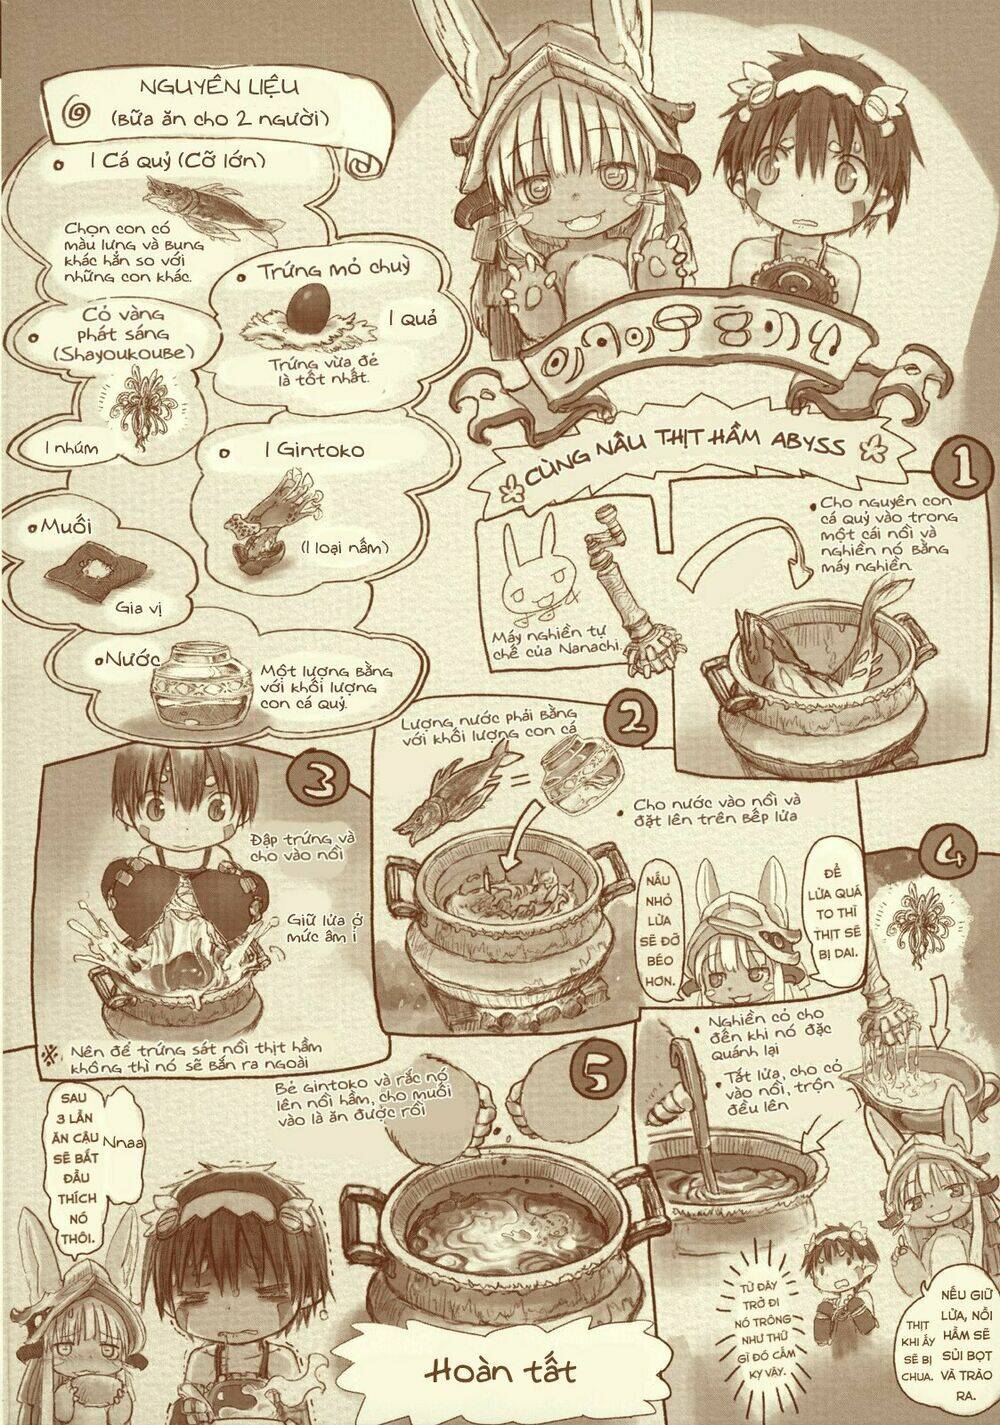 NGUYÊN LIỆU
(Bữa ăn cho 2 người)
1 Cá quỷ (Cỡ lớn)
Chọn con có
màu lưng và bụng
khác hẳn so với
những con khác.
Trứng mỏ chuỳ
1 Quả
Trứng vừa đẻ
là tốt nhất.
Cỏ vàng
phát sáng
(Shayoukoube)
1 nhúm
1 Gintoko
(1 loại nấm)
Muối
Gia vị
Nước
Một lượng bằng
với khối lượng
con cá quỷ.
CÙNG NẤU THỊT HẦM ABYSS
1
Cho nguyên con
cá quỷ vào trong
một cái nồi và
nghiền nó bằng
máy nghiền.
Máy nghiền tự
chế của Nanachi.
2
Lượng nước phải bằng
với khối lượng con cá
=
Cho nước vào nồi và
đặt lên trên bếp lửa
ĐỂ
LỬA QUÁ
TO THÌ
THỊT SẼ
BỊ DAI.
NẤU
NHỎ
LỬA
SẼ ĐỠ
BÉO
HƠN.
3
Đập trứng và
cho vào nồi
Giữ lửa ở
mức âm ỉ
※ Nên để trứng sát nồi thịt hầm
không thì nó sẽ bắn ra ngoài
4
Nghiền cỏ cho
đến khi nó đặc
quánh lại
Tắt lửa, cho cỏ
vào nồi, trộn
đều lên
NẾU GIỮ
LỬA, NỒI
HẦM SẼ
SỦI BỌT
VÀ TRÀO
RA.
THỊT
KHI ẤY
SẼ BỊ
CHUA.
TỪ ĐÂY
TRỞ ĐI
NÓ TRÔNG
NHƯ THỨ
GÌ ĐÓ CẤM
KỴ VẬY.
5
Bẻ Gintoko và rắc nó
lên nồi hầm, cho muối
vào là ăn được rồi
SAU
3 LẦN
ĂN CẬU
SẼ BẮT
ĐẦU
THÍCH
NÓ
THÔI.
Nnaa
Hoàn tất